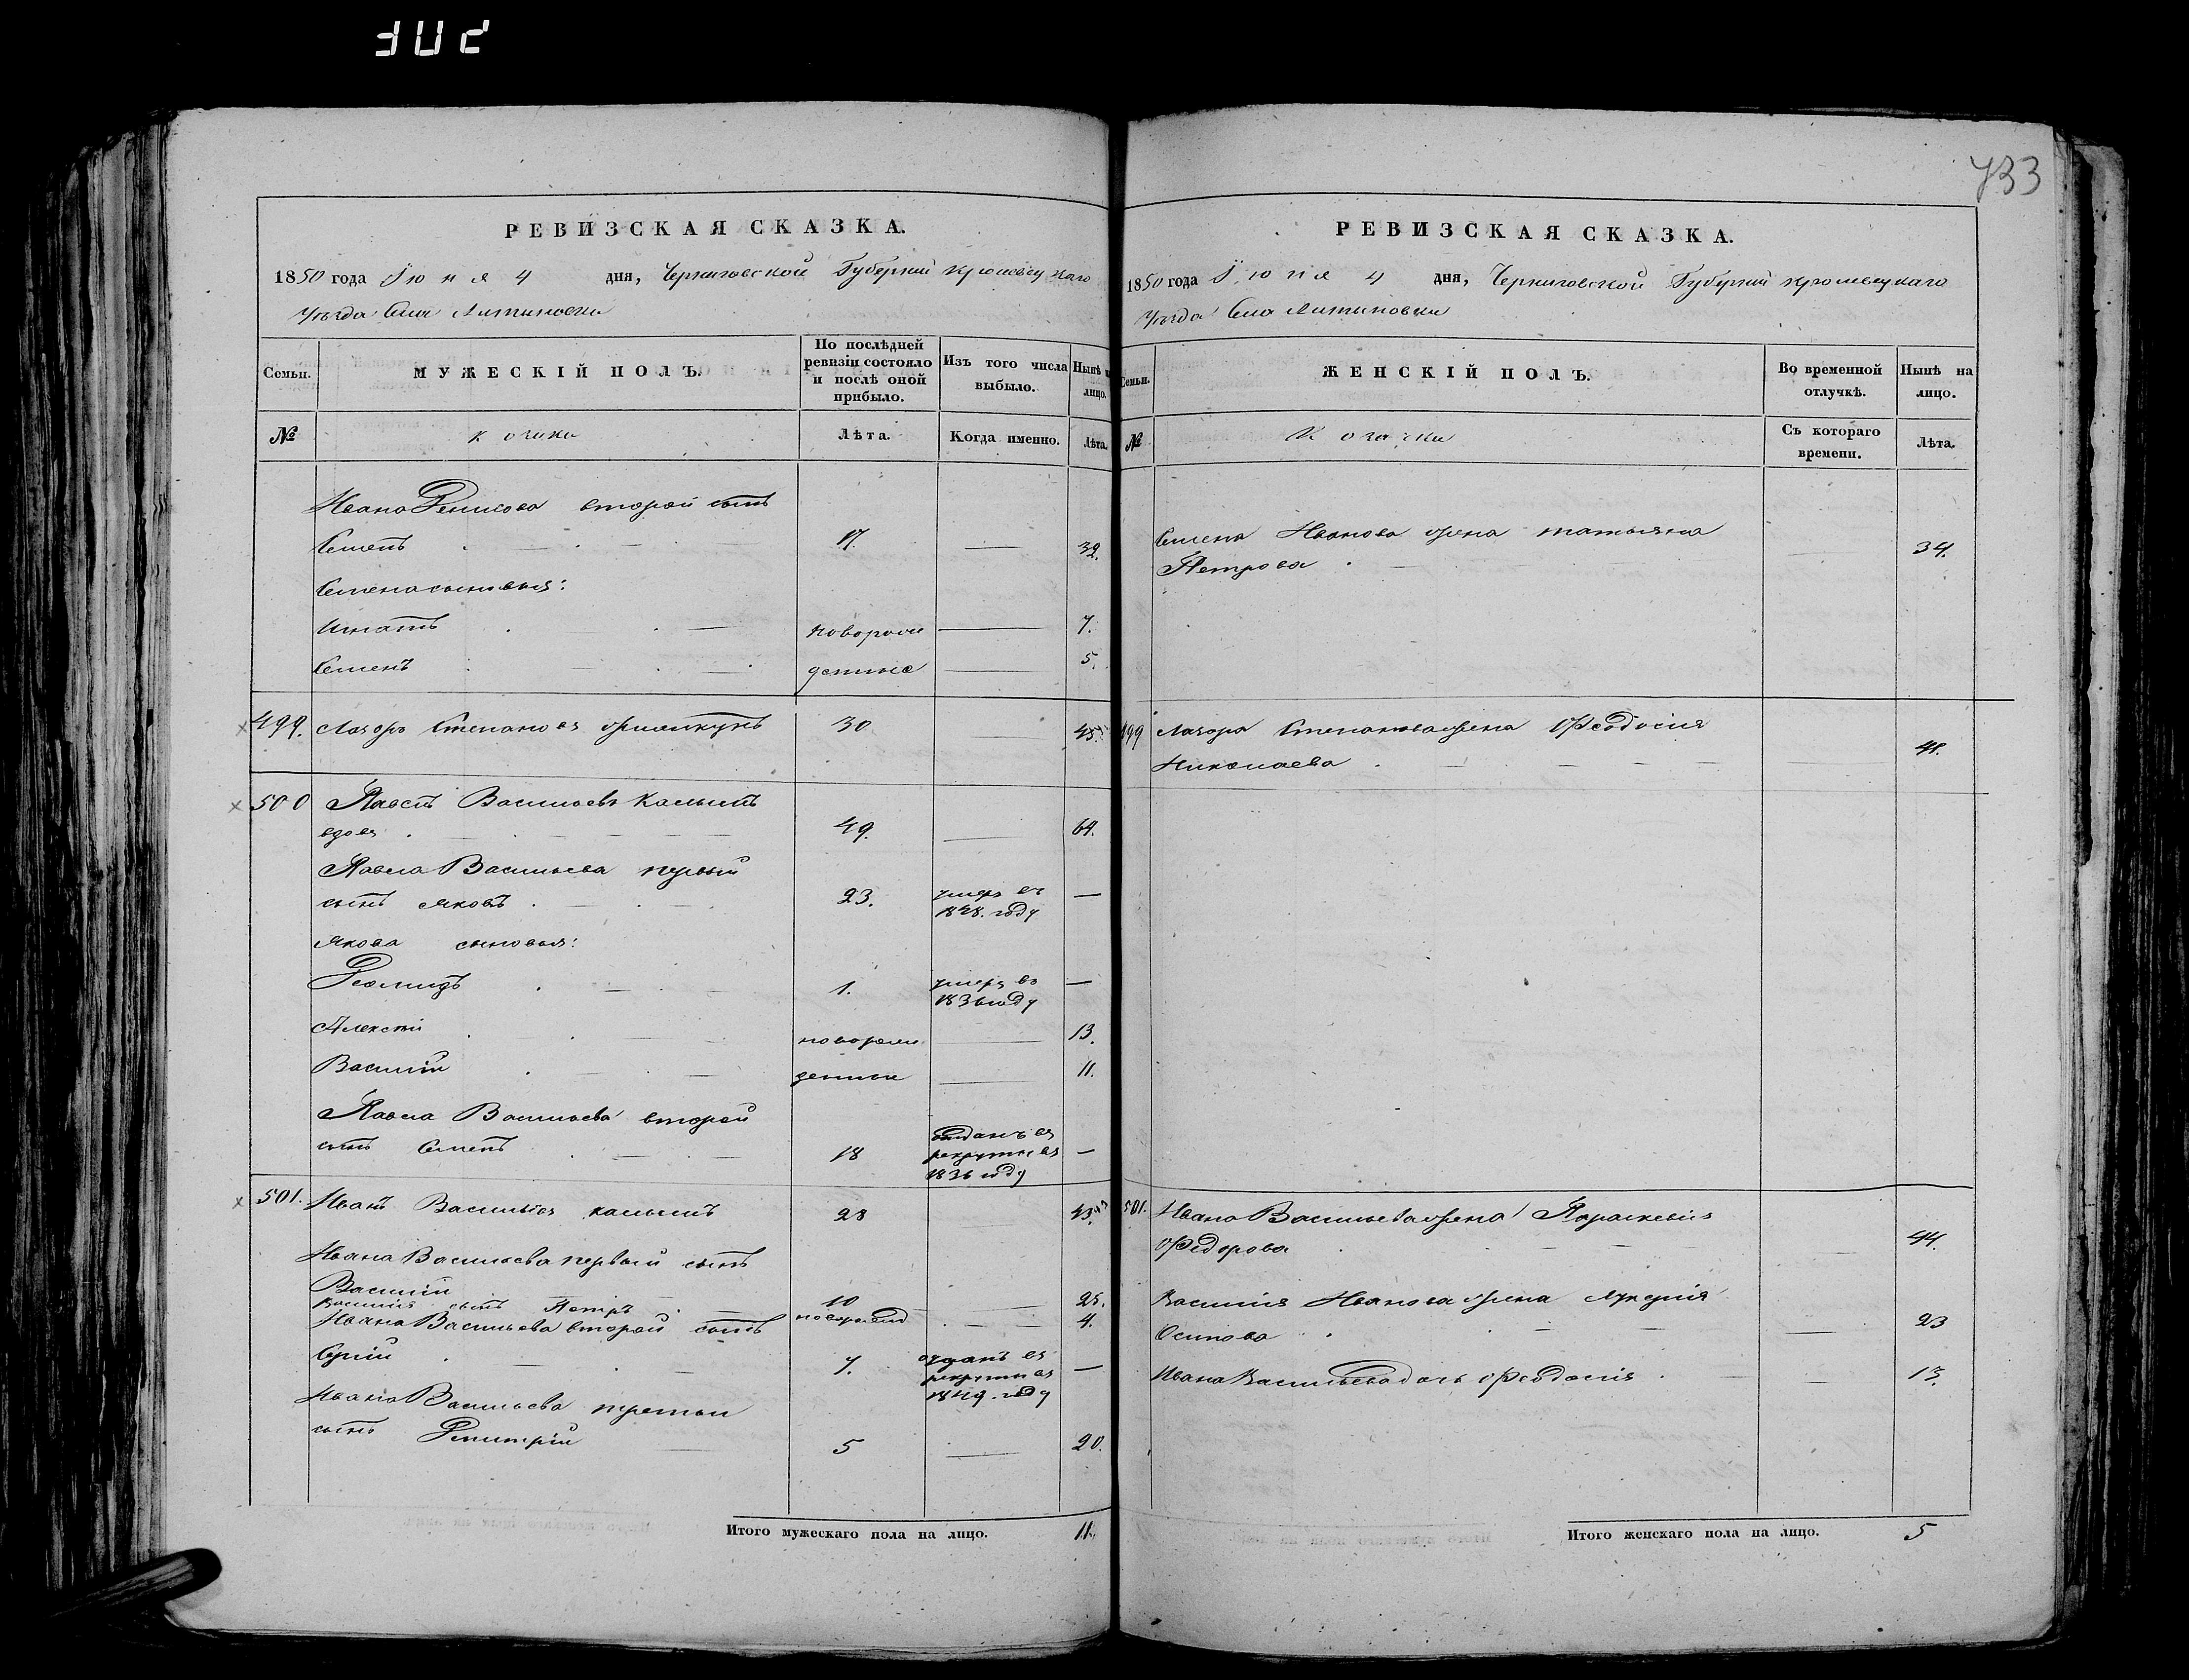 733
РЕВИЗСКАЯ СКАЗКА.
1850 года Іюня 4 дня, Черниговской Губерніи Кролевецкаго
уѣзда Села Литвиновки
Семьи.
МУЖЕСКІЙ ПОЛЪ.
По послѣдней ревизіи состояло и послѣ оной прибыло.
Изъ того числа выбыло.
Нынѣ на лицо.
№
Лѣта.
Когда именно.
Лѣта.
Ивана Денисова второй сынъ
Семенъ 17. 32.
Семена сыновья:
Игнатъ новорож 7.
Семенъ денные 5.
499. Лазоръ Степановъ 30 45.
500 Павелъ Васильевъ
вдовъ 49. 64.
Павла Васильева первый
сынъ Яковъ 23. умеръ въ 1848. году —
Якова сыновья:
Демидъ 1. умеръ въ 1836 году —
Алексѣй новорож 13.
Василій денные 11.
Павла Васильева второй
сынъ Семенъ 18 отданъ въ рекруты въ 1836 году —
501. Иванъ Васильевъ 28 43.
Ивана Васильева первый сынъ
Василій 10 25.
Василія сынъ Петръ новорожд 4.
Ивана Васильева второй сынъ
Сергій 7. отданъ въ рекруты въ 1849. году —
Ивана Васильева третьи
сынъ Димитрій 5 20.
Итого мужескаго пола на лицо. 11.
РЕВИЗСКАЯ СКАЗКА.
1850 года Іюня 4 дня, Черниговской Губерніи Кролевецкаго
уѣзда Села Литвиновки
Семьи.
ЖЕНСКІЙ ПОЛЪ.
Во временной отлучкѣ.
Нынѣ на лицо.
№
Съ котораго времени.
Лѣта.
Семена Иванова жена Татьяна
Петрова 34.
499 Лазора Степанова жена Феодосия
Николаева 41.
501. Ивана Васильева жена Параскевія
Федорова 44.
Василія Иванова жена Лукерія
Осипова 23
Ивана Васильева дочь Феодосія 13.
Итого женскаго пола на лицо. 5